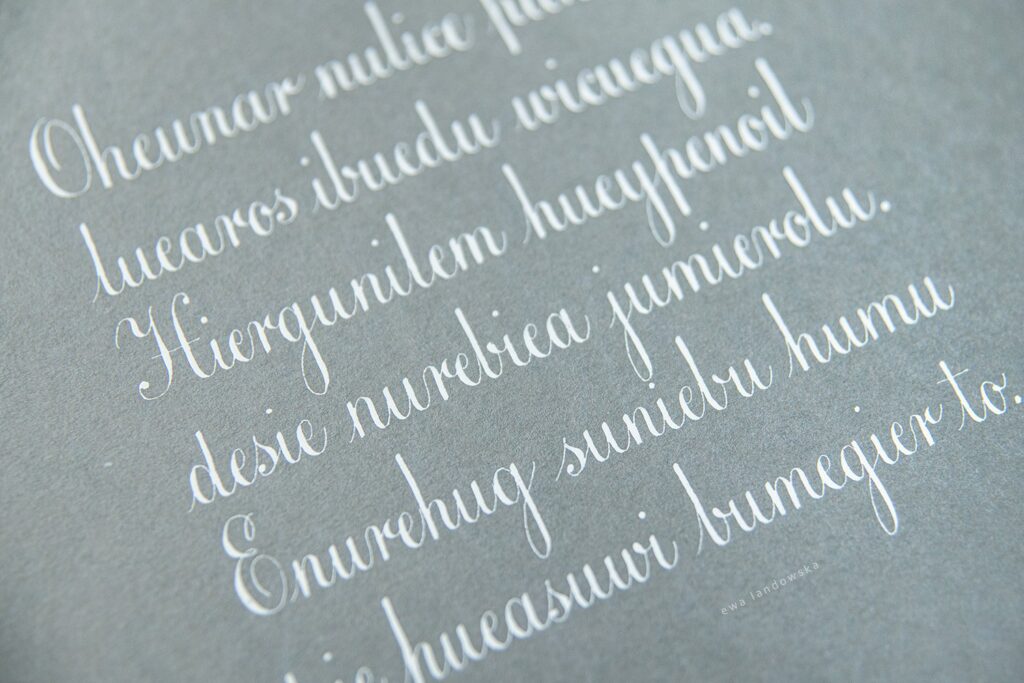 Oheunar nulice
luearos ibuedu wicuegua.
Hiergunilem hueypenoil
desie nurebiea jumierolu.
Enurehug suniebu humu
hueasuwi bumegier to.
ewa landowska